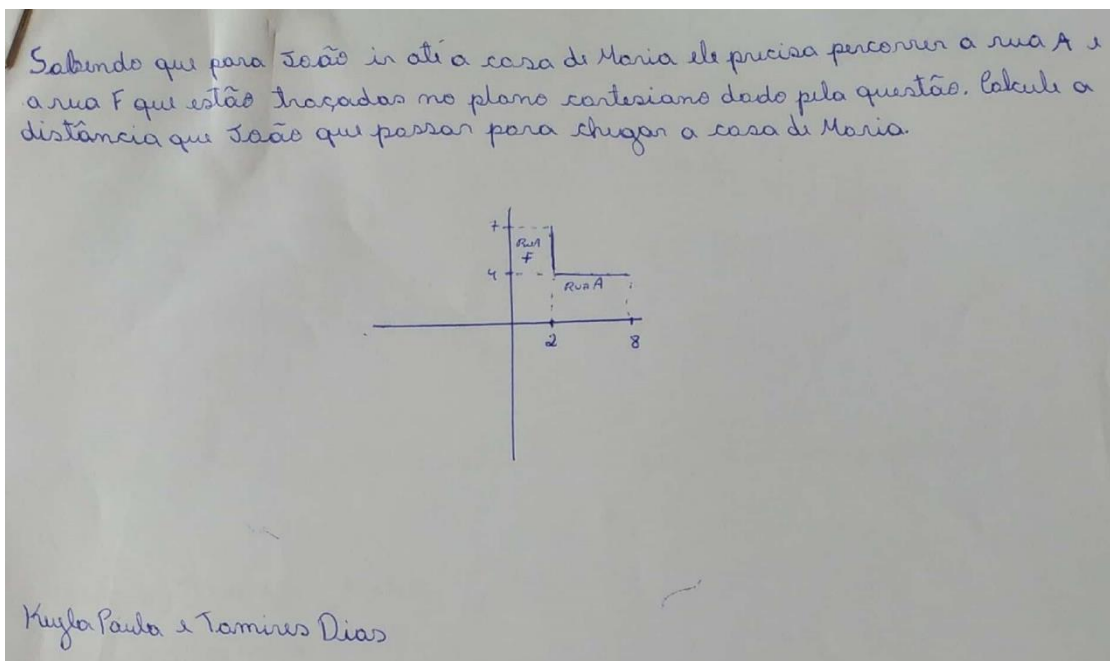 Sabendo que para João ir até a casa de Maria ele precisa percorrer a rua A e
a rua F que estão traçadas no plano cartesiano dado pela questão. Calcule a
distância que João que passar para chegar a casa de Maria.
7
RUA
F
4
RUA A
2
8
Keyla Paula e Tamires Dias